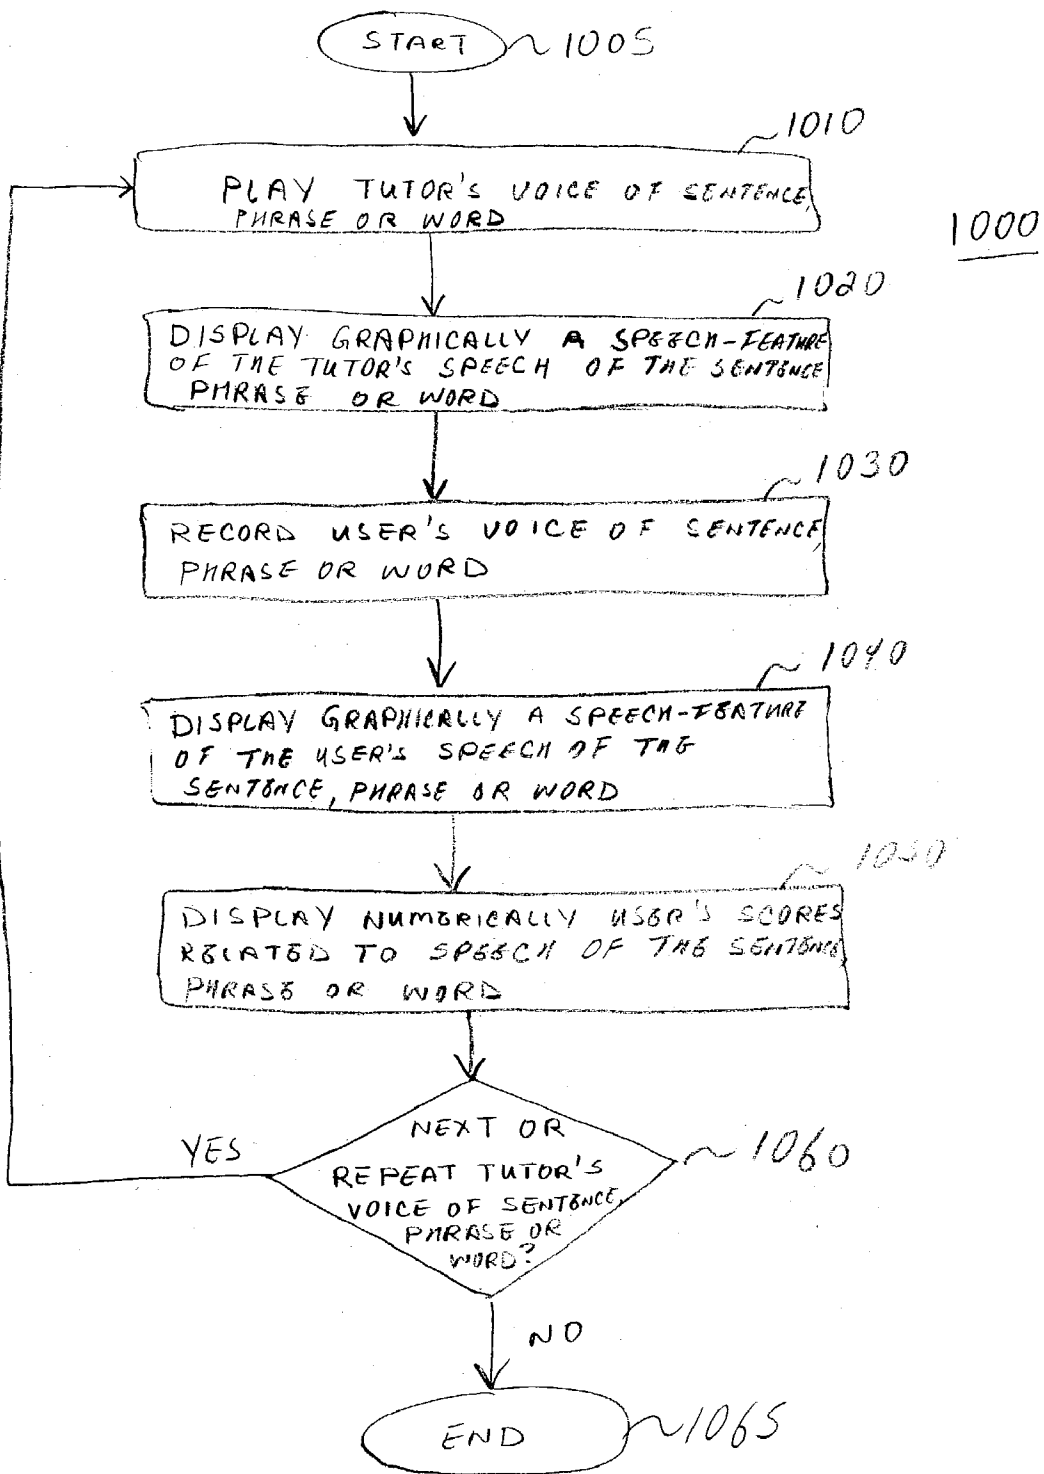 START 1005
1010
PLAY TUTOR'S VOICE OF SENTENCE,
PHRASE OR WORD
1000
1020
DISPLAY GRAPHICALLY A SPEECH-FEATURE
OF THE TUTOR'S SPEECH OF THE SENTENCE
PHRASE OR WORD
1030
RECORD USER'S VOICE OF SENTENCE,
PHRASE OR WORD
1040
DISPLAY GRAPHICALLY A SPEECH-FEATURE
OF THE USER'S SPEECH OF THE
SENTENCE, PHRASE OR WORD
1050
DISPLAY NUMERICALLY USER'S SCORES
RELATED TO SPEECH OF THE SENTENCE,
PHRASE OR WORD
YES
NEXT OR
REPEAT TUTOR'S
VOICE OF SENTENCE,
PHRASE OR
WORD?
1060
NO
END 1065